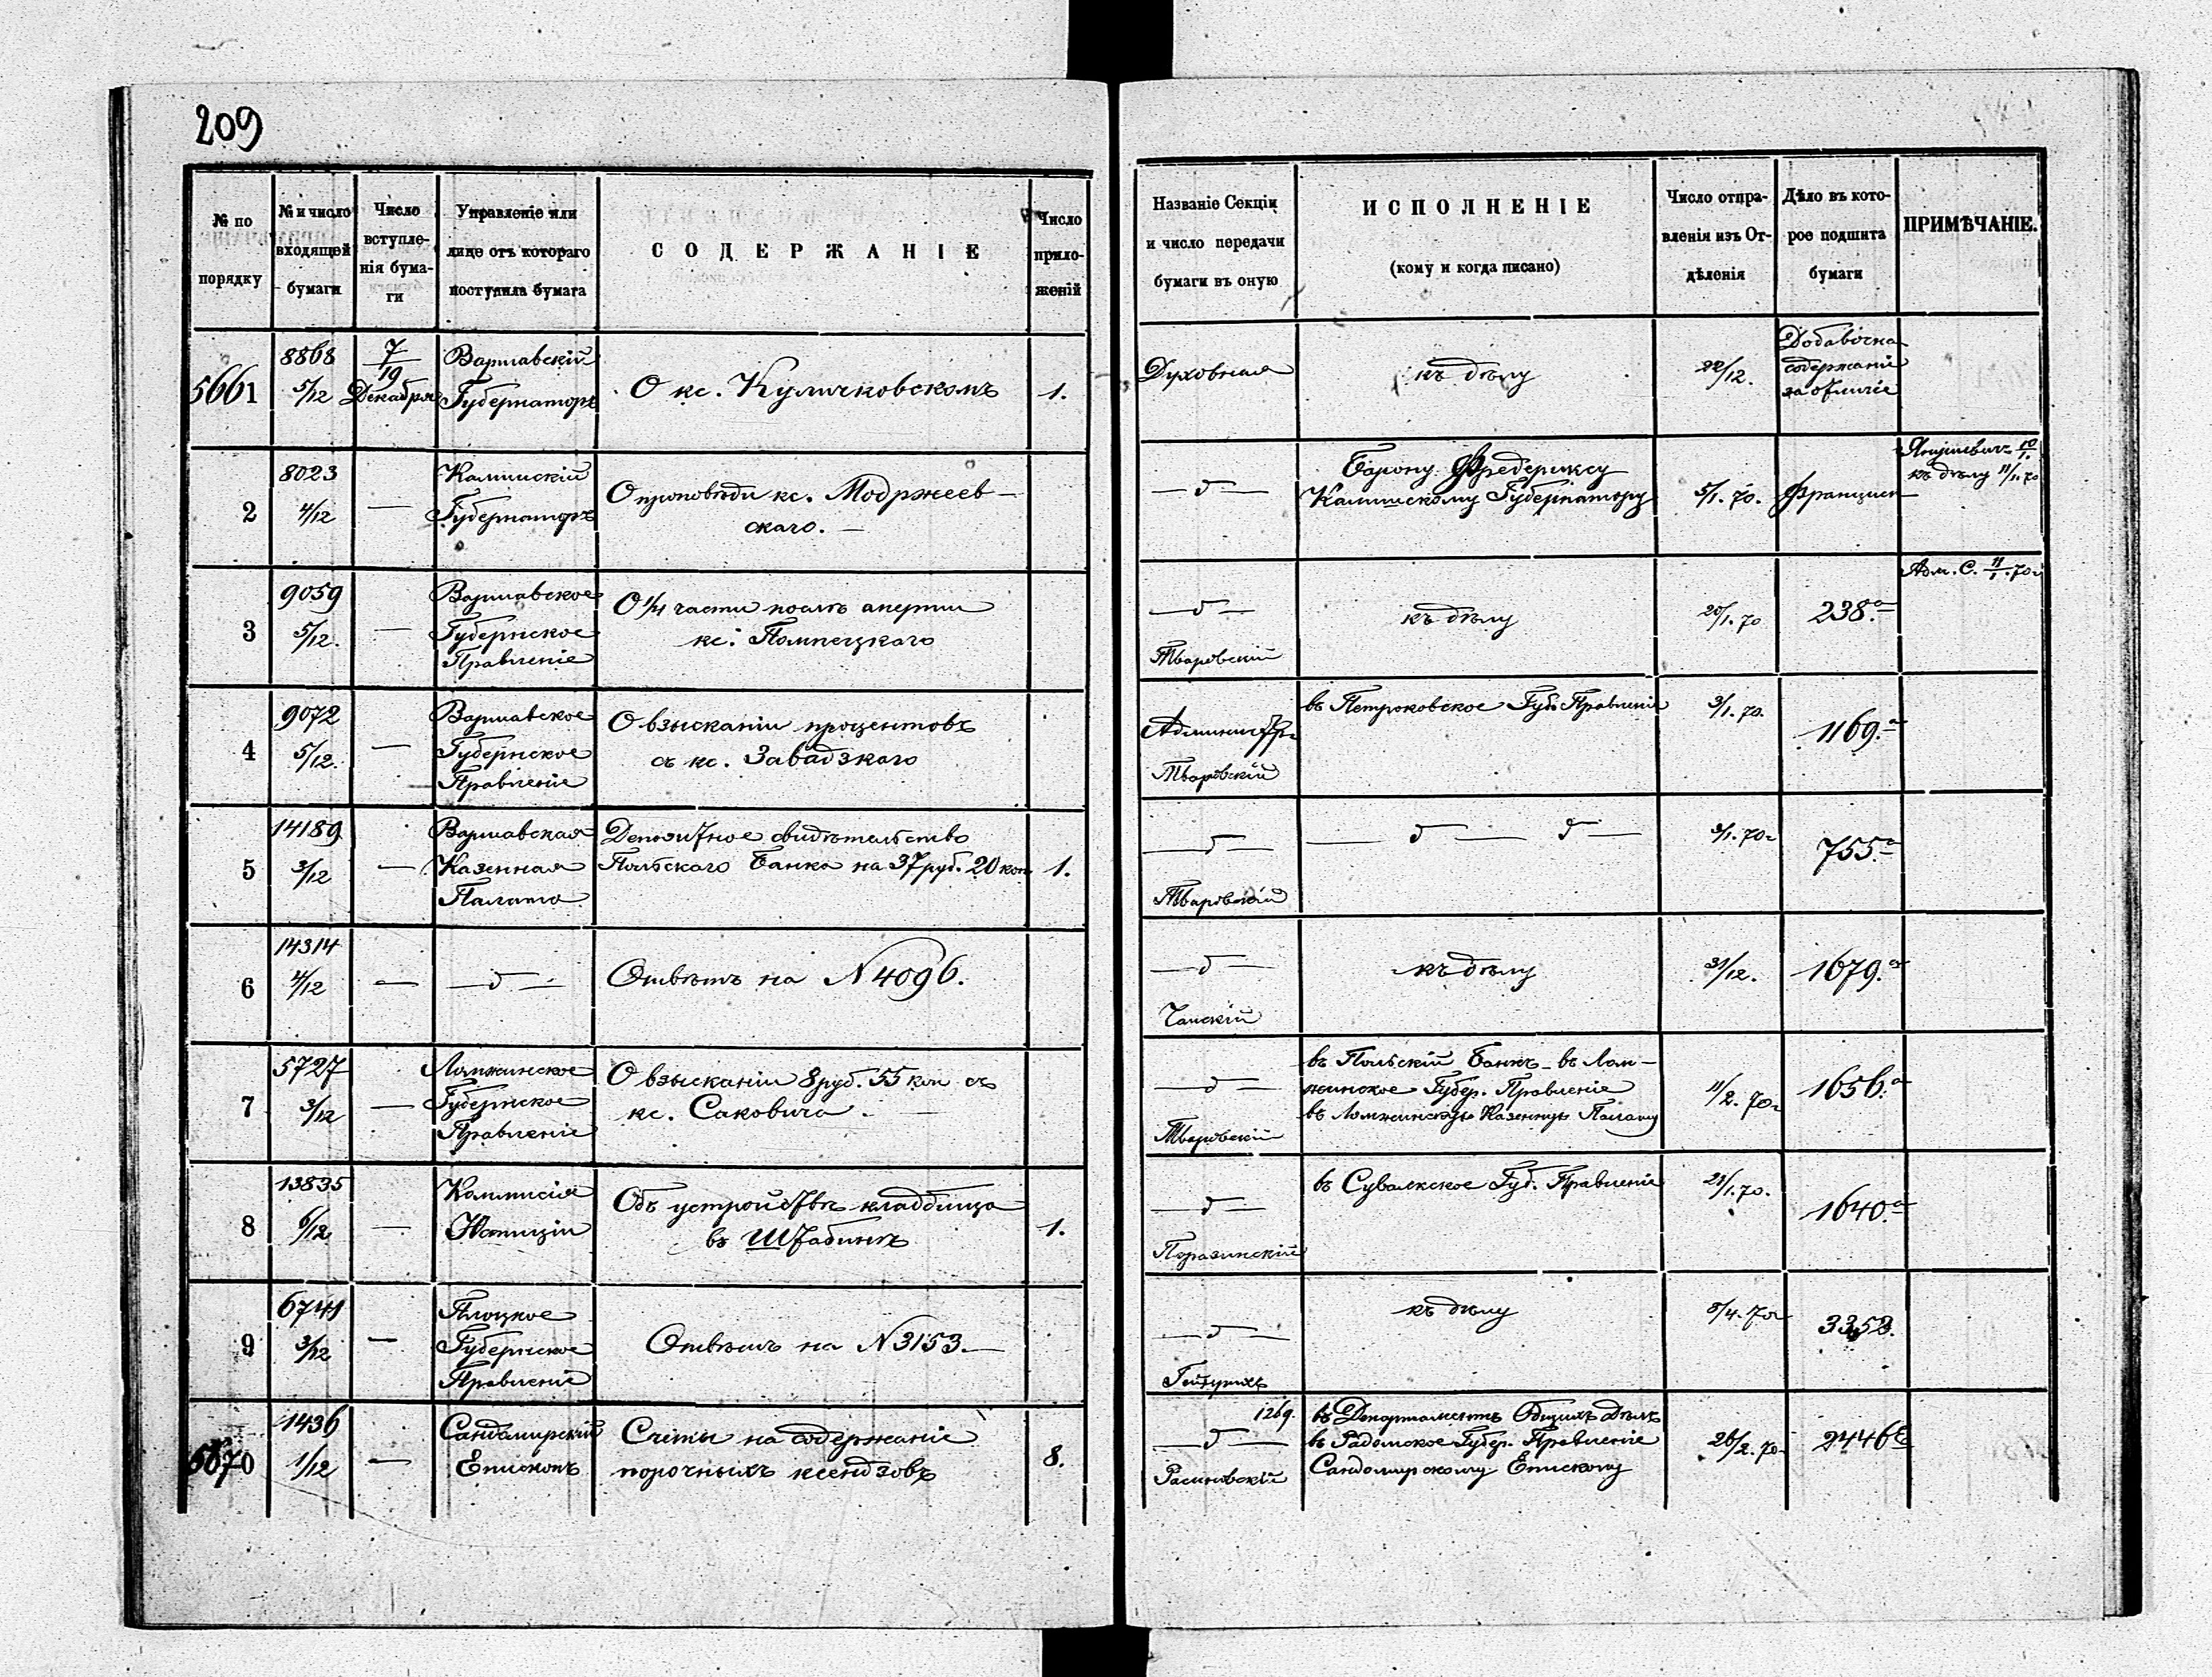 209
№ по порядку
№ и число входящей бумаги
Число вступленія бумаги
Управленіе или лице отъ котораго поступила бумага
СОДЕРЖАНІЕ
Число приложеній
Названіе Секціи и число передачи бумаги въ оную
ИСПОЛНЕНІЕ
(кому и когда писано)
Число отправленія изъ Отдѣленія
Дѣло въ которое подшита бумаги
ПРИМѢЧАНІЕ.
5661
8868
5/12
7/19
Декабря
Варшавскій
Губернаторъ
О кс. Куличковскомъ
1.
Духовная
къ дѣлу
22/12.
Добавочна
содержаніе
за отличіе
2
8023
4/12
—
Калишскій
Губернаторъ
О проповѣди кс. Модржеев-
скаго. —
— д —
Барону Фредериксу
Калишскому Губернатору
5/1. 70.
Францишк
10/1.
къ дѣлу 11/1. 70
3
9059
5/12.
—
Варшавское
Губернское
Правленіе
О 1/4 части послѣ смерти
кс.
— д —
Тваровскій
къ дѣлу
20/1. 70
238.а
Адм. С. 11/1. 70г
4
9072
5/12.
—
Варшавское
Губернское
Правленіе
О взысканіи процентовъ
съ кс. Завадзкаго
Тваровскій
въ Петроковское Губ. Правленіе
3/1. 70.
1169.а
5
14189
3/12
—
Варшавская
Казенная
Палата
Депозитное свидѣтельство
Польскаго Банка на 37 руб. 20 коп
1.
— д —
Тваровскій
— д — д —
3/1. 70г
755.а
6
14314
4/12
—
— д —
Отвѣтъ на N 4096.
— д —
Чапскій
къ дѣлу
31/12.
1679.а
7
5727
3/12
—
Ломжинское
Губернское
Правленіе
О взысканіи 8 руб. 55 коп съ
кс. Саковича. —
— д —
Тваровскій
въ Польскій Банкъ - въ Лом-
жинское Губер. Правленіе
въ Ломжинскую Казенную Палату
11/2. 70г
1656.а
8
13835
6/12
—
Коммисія
Юстиціи
Объ устройствѣ кладбища
въ Штабинѣ
1.
— д —
Поразинскій
въ Сувалкское Губ. Правленіе
21/1. 70.
1640.а
9
6741
3/12
—
Плоцкое
Губернское
Правленіе
Отвѣтъ на N 3153. —
— д —
къ дѣлу
8/4. 70г
3353.
5670
1436
1/12
—
Сандомирскій
Епископъ
Счеты на содержаніе
порочныхъ ксендзовъ
8.
1269.
— д —
въ Департаментъ Общихъ Дѣлъ
въ Радомское Губер. Правленіе
Сандомирскому Епископу
26/2. 70